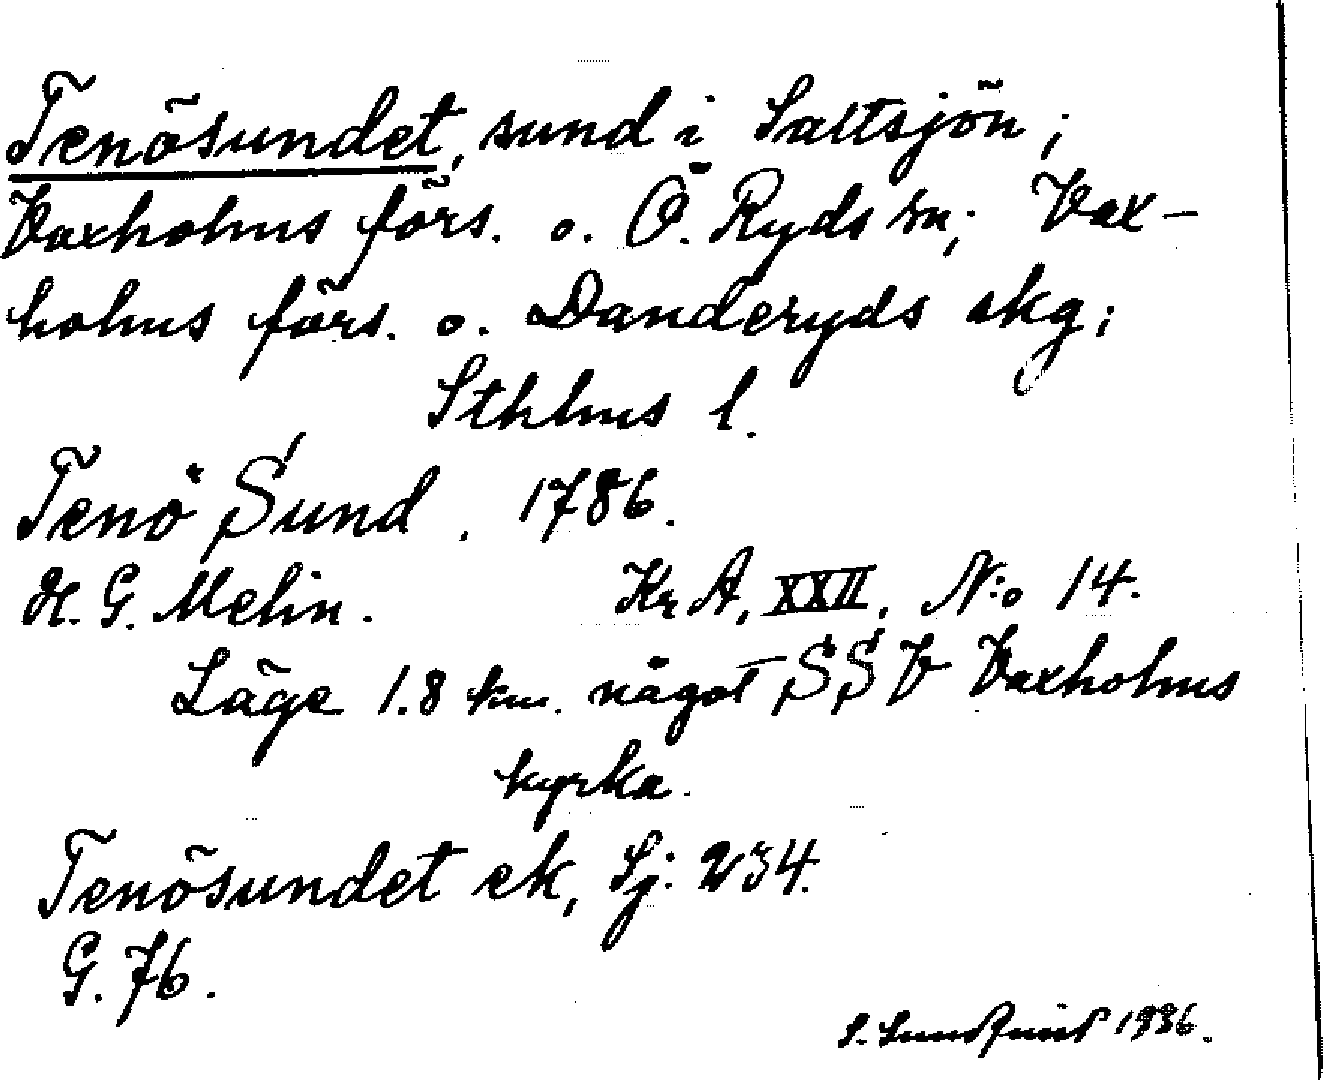 Tenösundet, sund i Saltsjön;
Vaxholms förs. o. Ö. Ryds sn; Vax-
holms förs. o. Danderyds skg;
Sthlms l.
Tenö Sund. 1786.
H. G. Melin. Kr A, XXII, N:o 14.
Läge 1.8 km. något SSV Vaxholms
kyrka.
Tenösundet ek, Sj: 234.
G. 76.
S. Sundquist 1936.